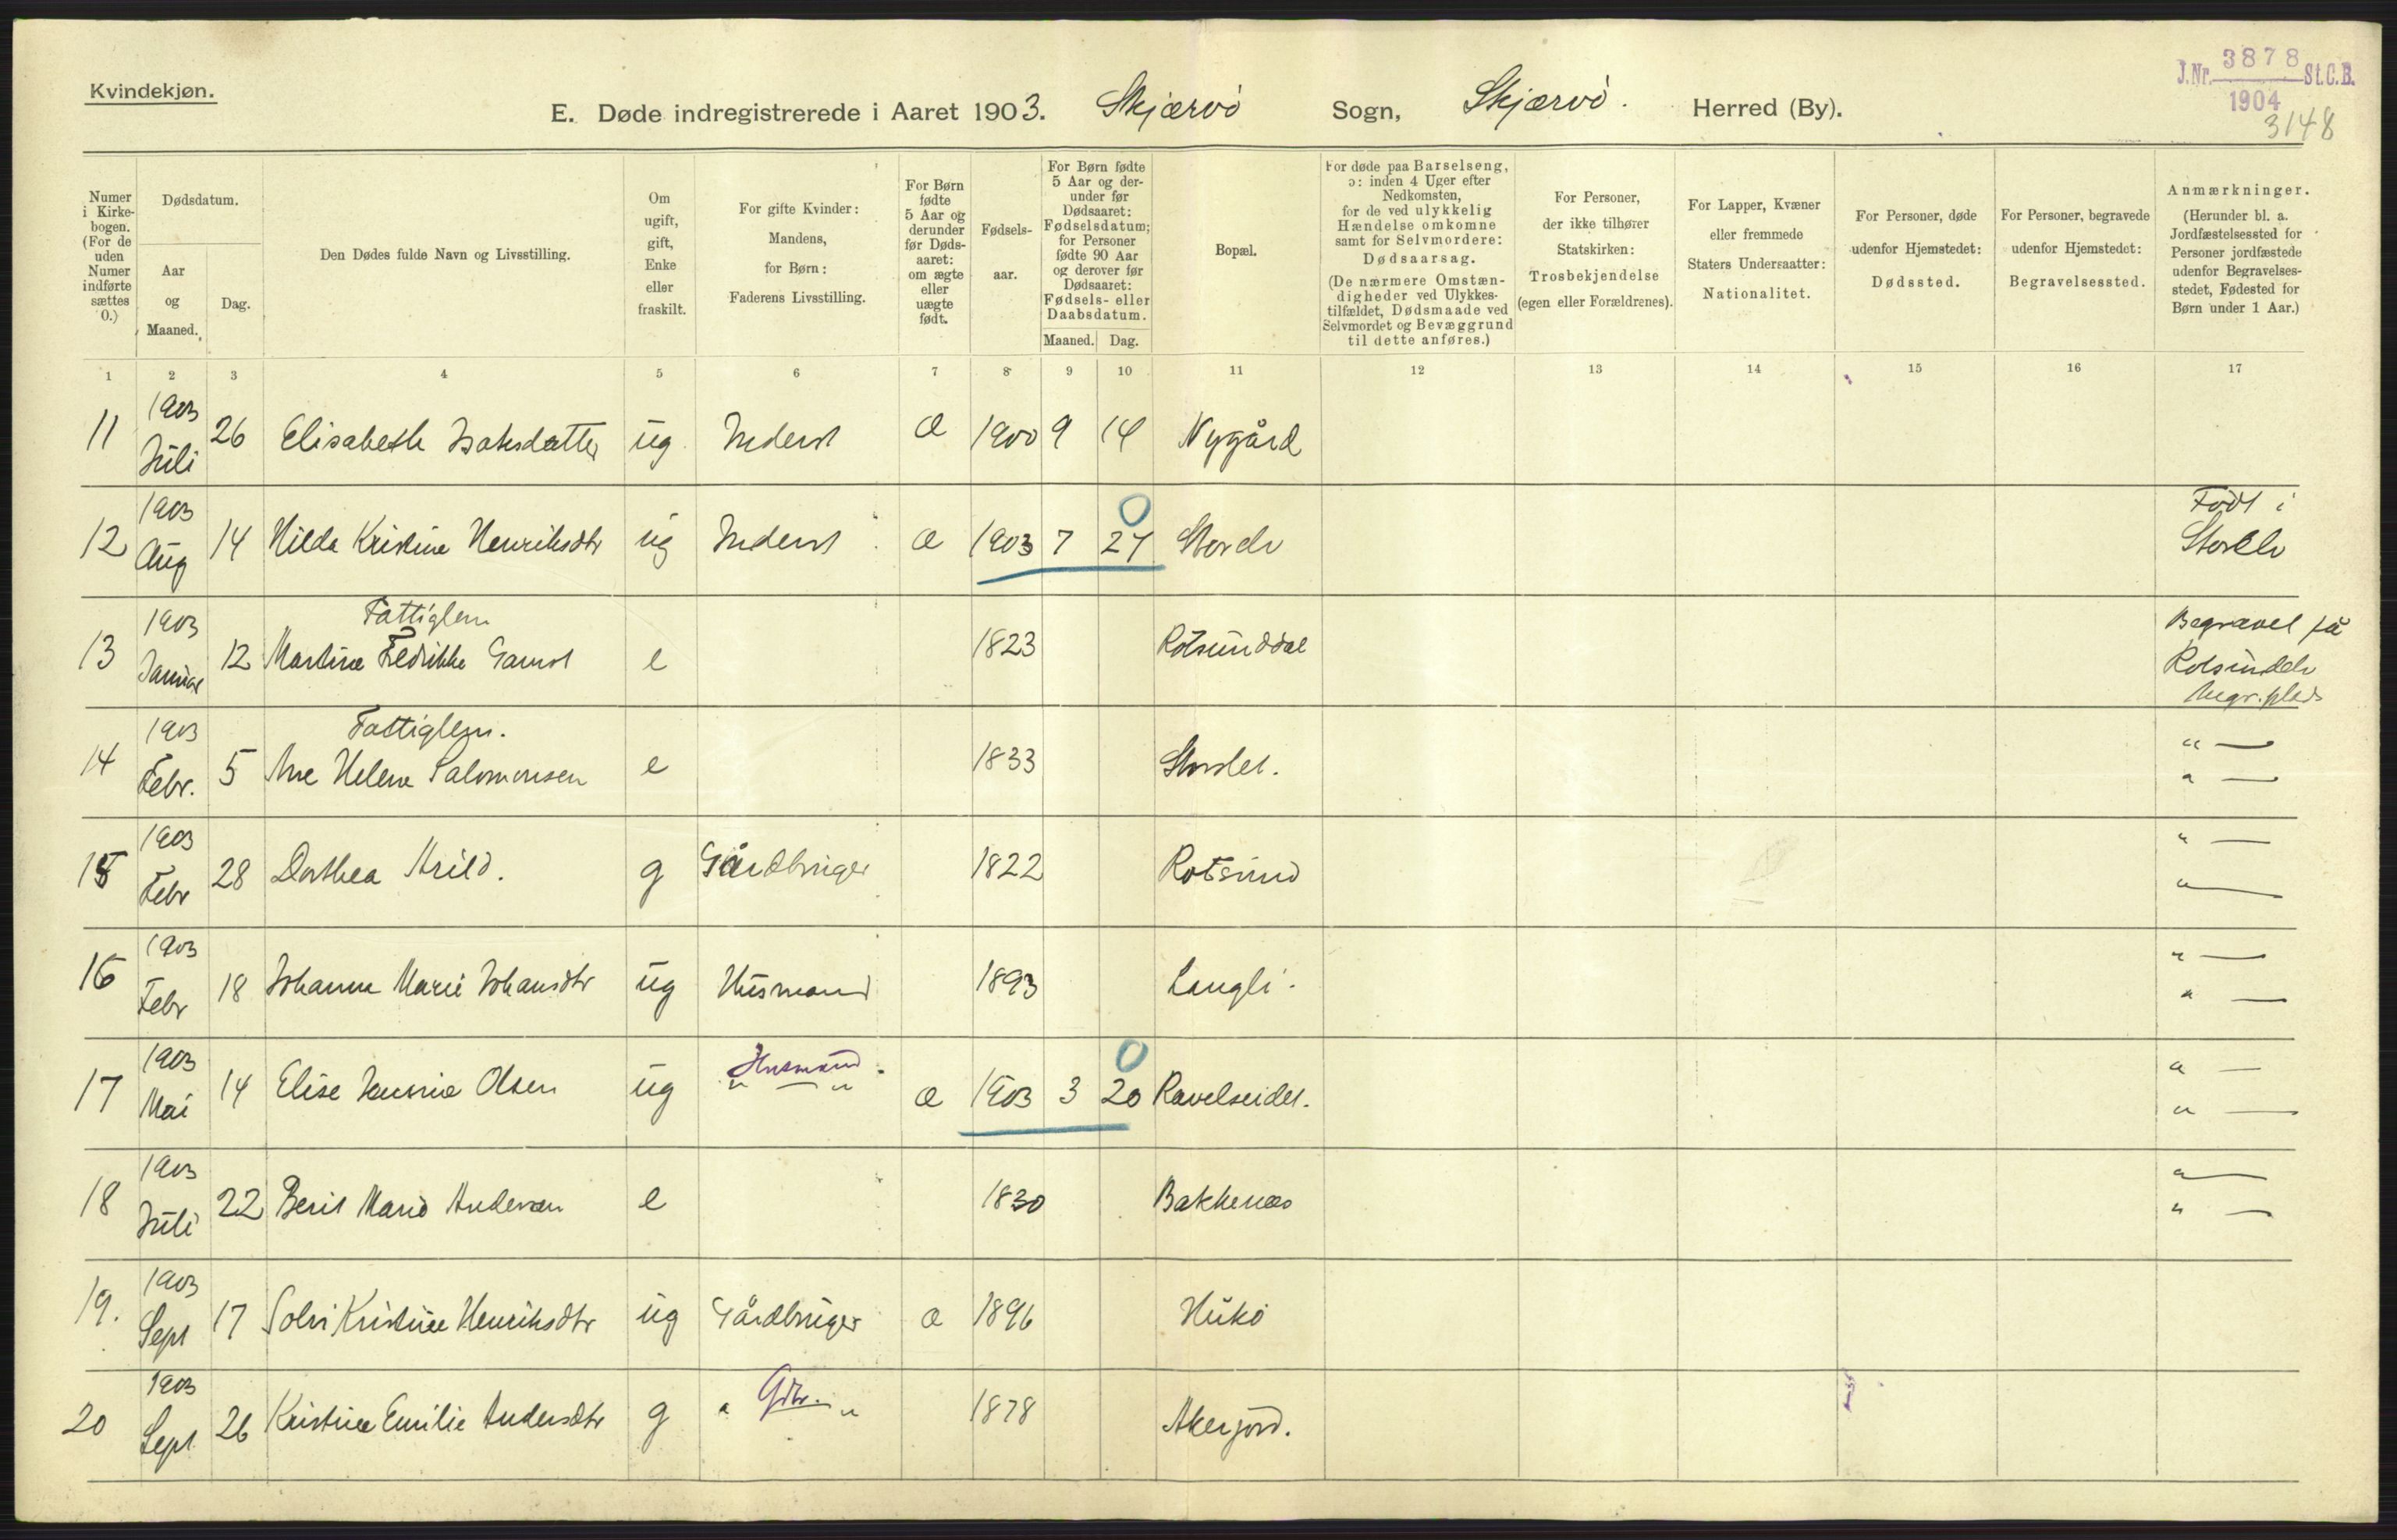 Kvindekjøn.
E. Døde indregistrerede i Aaret 1903. Skjærvö Sogn, Skjærvö. Herred (By).
J.Nr. 3878 St.C.B.
1904
3148
Numer i Kirkebogen. (For de uden Numer indførte sættes 0.)
Dødsdatum.
Aar og Maaned.
Dag.
Den Dødes fulde Navn og Livsstilling.
Om ugift, gift, Enke eller fraskilt.
For gifte Kvinder: Mandens, for Børn: Faderens Livsstilling.
For Børn fødte 5 Aar og derunder før Dødsaaret: om ægte eller uægte født.
Fødselsaar.
For Børn fødte 5 Aar og derunder før Dødsaaret: Fødselsdatum; for Personer fødte 90 Aar og derover før Dødsaaret: Fødsels- eller Daabsdatum.
Maaned. Dag.
Bopæl.
For døde paa Barselseng, ɔ: inden 4 Uger efter Nedkomsten, for de ved ulykkelig Hændelse omkomne samt for Selvmordere: Dødsaarsag.
(De nærmere Omstændigheder ved Ulykkestilfældet, Dødsmaade ved Selvmordet og Bevæggrund til dette anføres.)
For Personer, der ikke tilhører Statskirken: Trosbekjendelse (egen eller Forældrenes).
For Lapper, Kvæner eller fremmede Staters Undersaatter: Nationalitet.
For Personer, døde udenfor Hjemstedet: Dødssted.
For Personer, begravede udenfor Hjemstedet: Begravelsessted.
Anmærkninger.
(Herunder bl. a. Jordfæstelsessted for Personer jordfæstede udenfor Begravelsesstedet, Fødested for Børn under 1 Aar.)
1 2 3 4 5 6 7 8 9 10 11 12 13 14 15 16 17
11 1903 Juli 26 Elisabeth Isaksdatter ug Inderst æ 1900 9 14 Nygård
12 1903 Aug 14 Hilda Kristine Henriksdtr ug Inderst æ 1903 7 27 0 Storelv Födt i Storelv
13 1903 Januar 12 Fattiglem Martine Fredrikke Gamst e 1823 Rotsunddal Begravet på Rotsundelv begr.plads
14 1903 Febr. 5 Fattiglem. Ane Helene Salomonsen e 1833 Storslet. " —
" —
15 1903 Febr 28 Dorthea Arild. g Gårdbruger 1822 Rotsund " —
" —
16 1903 Febr 18 Johanna Marie Johansdtr ug Husmand 1893 Langli. " —
" —
17 1903 Mai 14 Elise Olsen ug Husmand. " — " æ 1903 3 20 0 Ravelseidet. " —
" —
18 1903 Juli 22 Berit Maria Andersen e 1830 Bakkenæs " —
" —
19. 1903 Sept 17 Solvi Kristine Henriksdtr ug Gårdbruger æ 1896 Hukö
20 1903 Sept 26 Kristine Emilie Andersdtr g " Gdbr. " 1878 Akerjord.